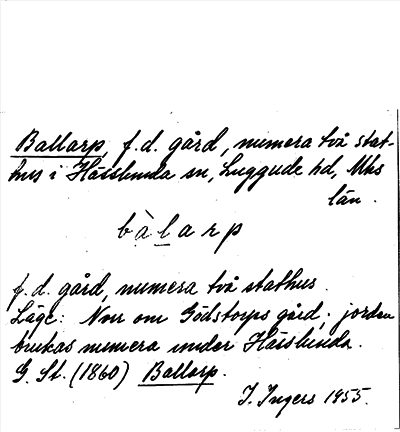 Ballarp, f.d. gård, numera två stat-
hus i Hässlunda sn, Luggude hd, Mhs
län.
bàlarp
f.d. gård, numera två stathus.
Läge: Norr om Gödstorps gård; jorden
brukas numera under Hässlunda.
G. St. (1860) Ballarp.
I. Ingers 1955.